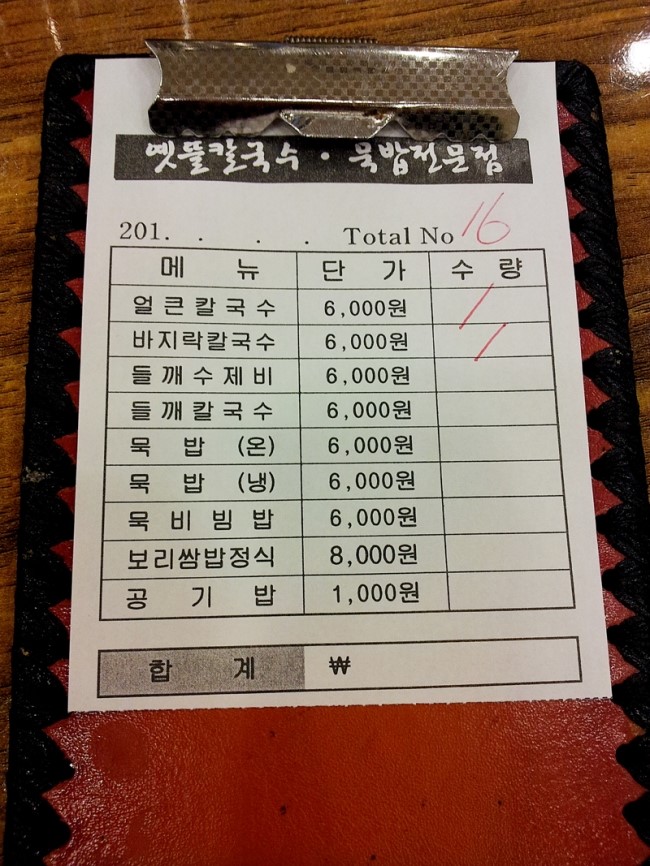 옛뜰칼국수 · 묵밥전문점
201. . . . Total No 16
메 뉴 단 가 수 량
얼큰칼국수 6,000원 /
바지락칼국수 6,000원 /
들깨수제비 6,000원
들깨칼국수 6,000원
묵 밥 (온) 6,000원
묵 밥 (냉) 6,000원
묵비빔밥 6,000원
보리쌈밥정식 8,000원
공 기 밥 1,000원
합 계 ₩